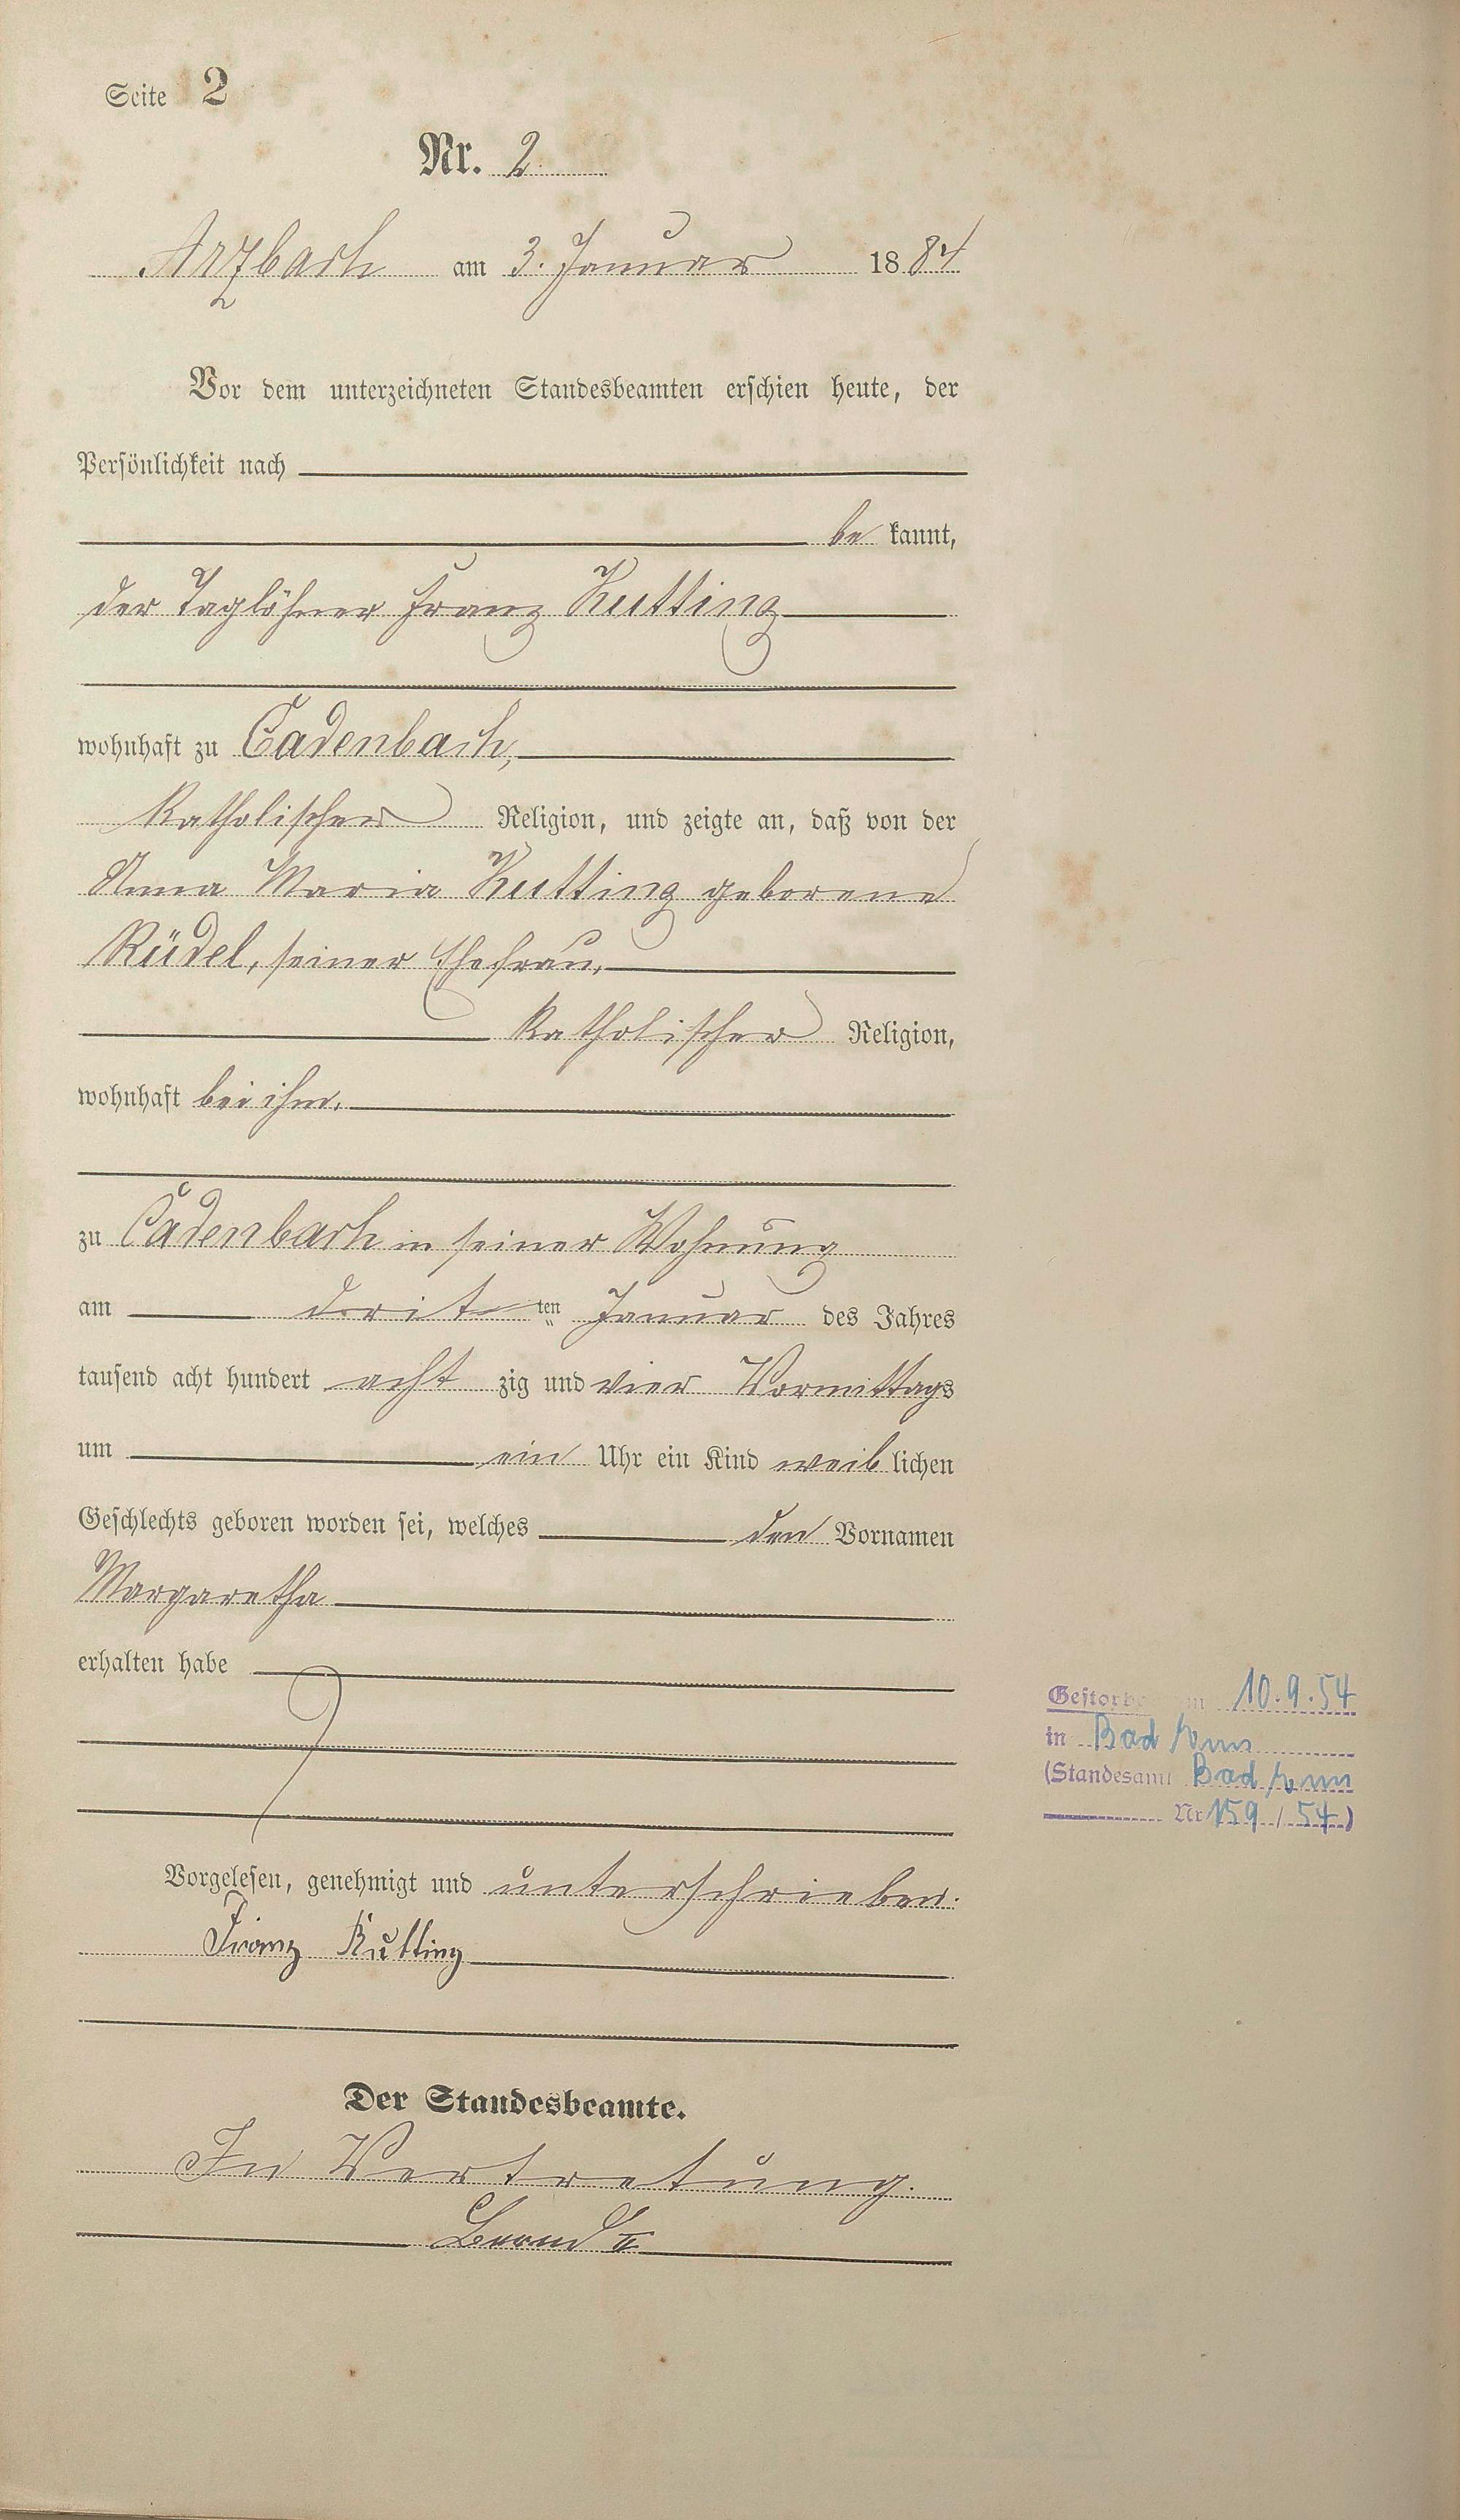 Seite 2
Nr. 2
Arzbach am 3. Januar 1884
Vor dem unterzeichneten Standesbeamten erschien heute, der
Persönlichkeit nach
be kannt,
der Taglöhner Franz Kutting
wohnhaft zu Cadenbach,
katholischer Religion, und zeigte an, daß von der
Anna Maria Kutting geborene
Rüdel, seiner Ehefrau,
katholischer Religion,
wohnhaft bei ihm,
zu Cadenbach in seiner Wohnung
am dritten Januar des Jahres
tausend acht hundert acht zig und vier Vormittags
um ein Uhr ein Kind weib lichen
Geschlechts geboren worden sei, welches den Vornamen
Margaretha
erhalten habe
Gestorben am 10.9.54
in Bad Ems
(Standesamt Bad Ems
Nr 159 / 54)
Vorgelesen, genehmigt und unterschrieben.
Franz Kutting
Der Standesbeamte.
In Vertretung.